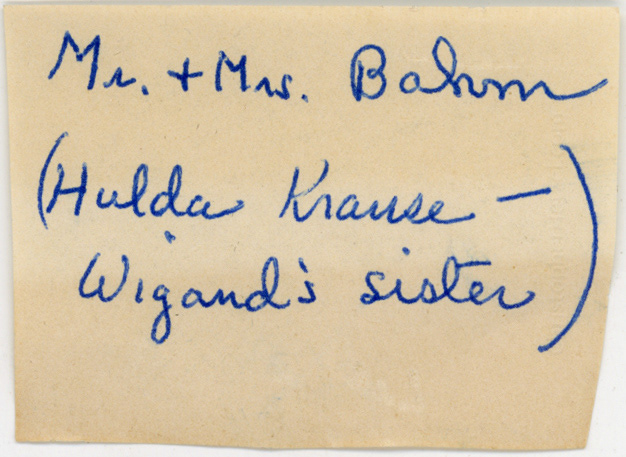 Mr. + Mrs. Bahm
(Hulda Krause —
Wigand's sister)